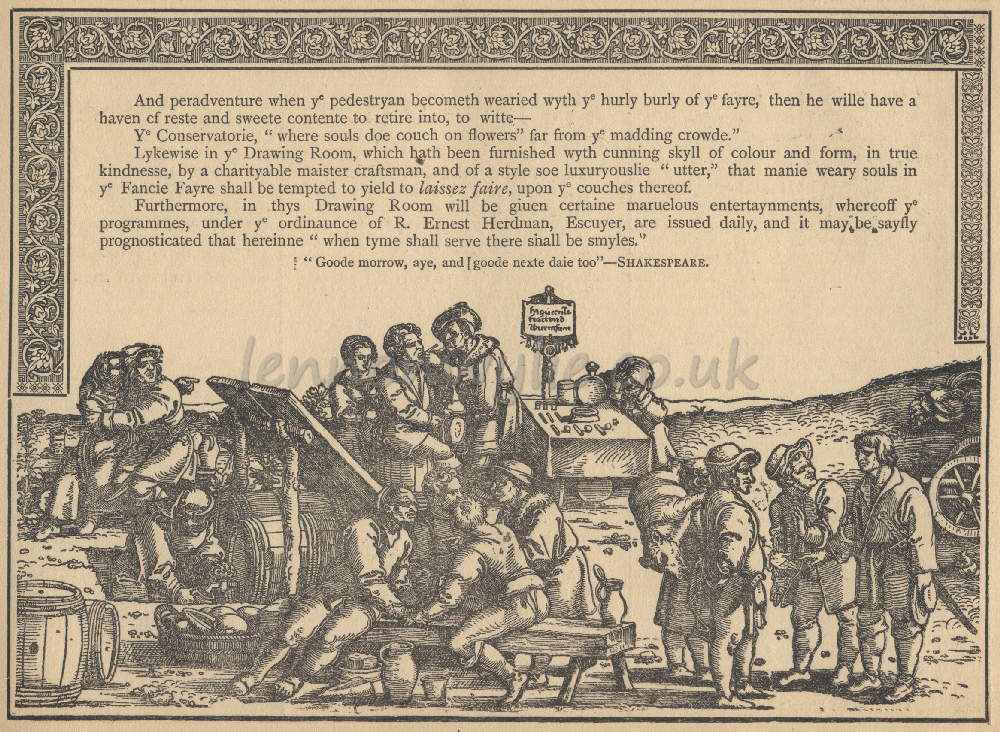 And peradventure when yᵉ pedestryan becometh wearied wyth yᵉ hurly burly of yᵉ fayre, then he wille have a
haven of reste and sweete contente to retire into, to witte—
Yᵉ Conservatorie, “ where souls doe couch on flowers” far from yᵉ madding crowde.”
Lykewise in yᵉ Drawing Room, which hath been furnished wyth cunning skyll of colour and form, in true
kindnesse, by a charityable maister craftsman, and of a style soe luxuryouslie “ utter,” that manie weary souls in
yᵉ Fancie Fayre shall be tempted to yield to laissez faire, upon yᵉ couches thereof.
Furthermore, in thys Drawing Room will be giuen certaine maruelous entertaynments, whereoff yᵉ
programmes, under yᵉ ordinaunce of R. Ernest Herdman, Escuyer, are issued daily, and it may be sayfly
prognosticated that hereinne “ when tyme shall serve there shall be smyles.”
“ Goode morrow, aye, and [goode nexte daie too”—SHAKESPEARE.